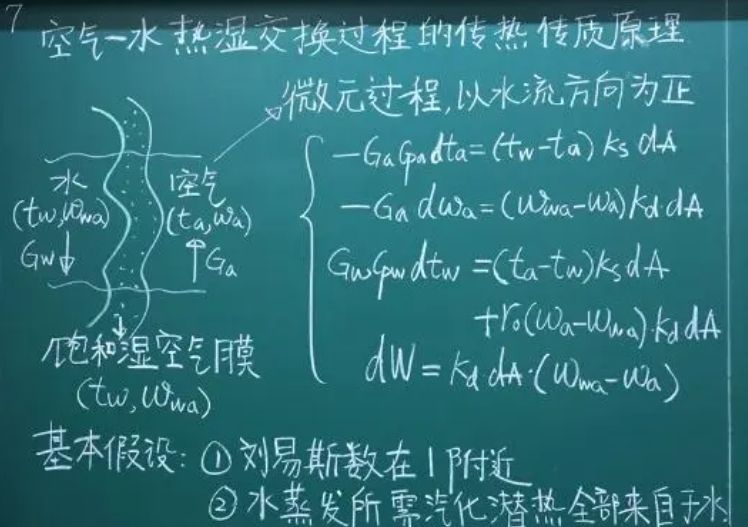 7
空气-水热湿交换过程的传热传质原理
微元过程,以水流方向为正
水
(tw,ωwa)
Gw↓
空气
(ta,ωa)
↑Ga
饱和湿空气膜
(tw,ωwa)
-GaCpadta=(tw-ta)ksdA
-Gadωa=(ωwa-ωa)kd·dA
GwCpwdtw=(ta-tw)ksdA
+r₀(ωa-ωwa)·kddA
dW=kd·dA·(ωwa-ωa)
基本假设:①刘易斯数在1附近
②水蒸发所需汽化潜热全部来自于水